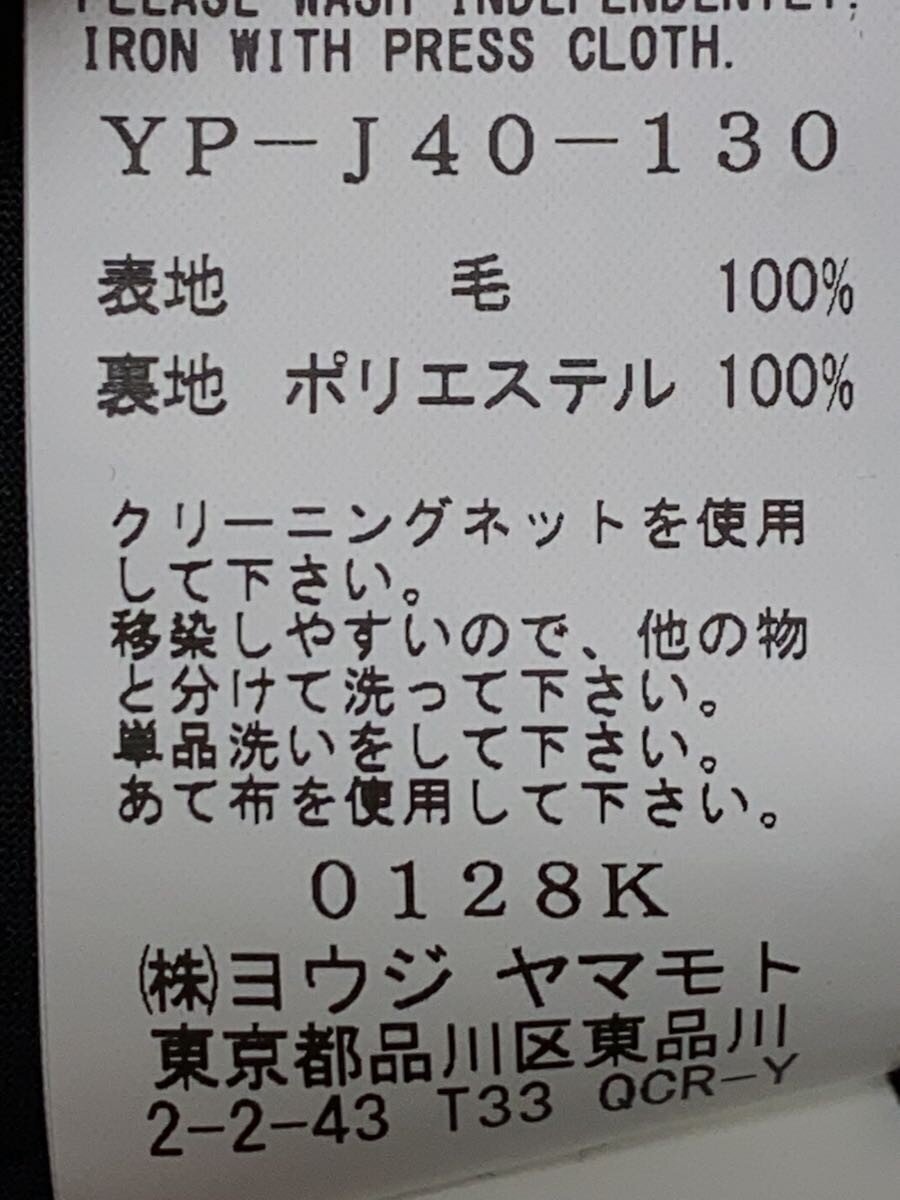 PLEASE WASH INDEPENDENTLY.
IRON WITH PRESS CLOTH.
YP-J40-130
表地 毛 100%
裏地 ポリエステル 100%
クリーニングネットを使用
して下さい。
移染しやすいので、他の物
と分けて洗って下さい。
単品洗いをして下さい。
あて布を使用して下さい。
0128K
㈱ヨウジ ヤマモト
東京都品川区東品川
2-2-43 T33 QCR-Y